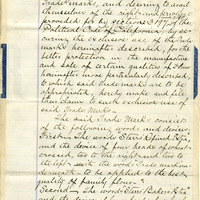 Trade marks, and desiring to avail
themselves of the rights and privileges
provided for by section 3197 of the
Political Code of California, by se-
curing the exclusive use of the trade
marks hereinafter described, for the
better protection in the manufacture
and sale of certain quality of flour
hereinafter more particularly described,
to which said trade marks are to be
appropriated, hereby make and file
their claim to such exclusive use of
said Trade Marks
The said Trade Marks consists
of the following words and devices:
First - The words
and the device of four heads of wheat
crossed, two to the right and two to
the left and the word "trade mark" un-
derneath - to be applied to the best
quality of family flour.
Second - The words "Starr Bakers Extra"